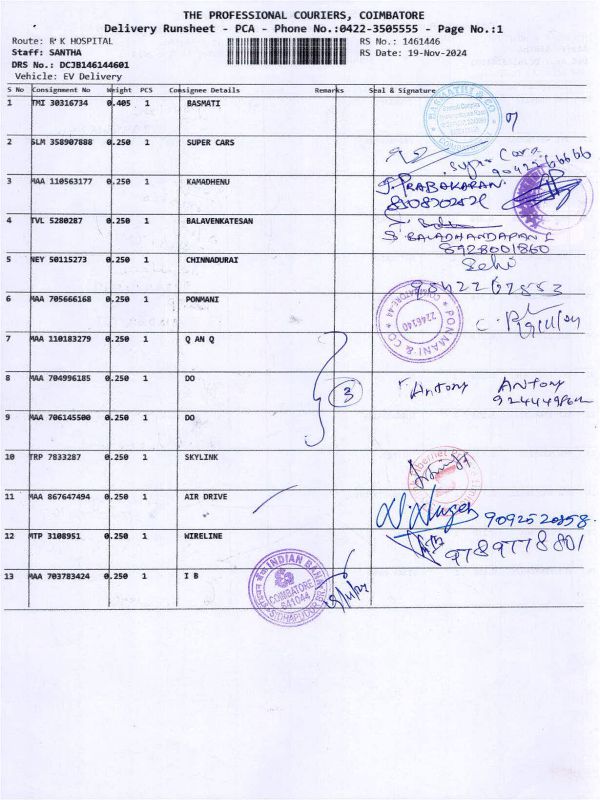 THE PROFESSIONAL COURIERS, COIMBATORE
Delivery Runsheet - PCA - Phone No.:0422-3505555 - Page No.:1
Route: R'K HOSPITAL RS No.: 1461446
Staff: SANTHA RS Date: 19-Nov-2024
DRS No.: DCJB146144601
Vehicle: EV Delivery
S No Consignment No Weight PCS Consignee Details Remarks Seal & Signature
1 TMI 30316734 0.405 1 BASMATI
2 SLM 358907888 0.250 1 SUPER CARS
Super Cars
3 MAA 110563177 0.250 1 KAMADHENU J. PRABAKARAN
4 TVL 5280287 0.250 1 BALAVENKATESAN
S BALADHANDAPANI
8928001860
5 NEY 50115273 0.250 1 CHINNADURAI
6 MAA 705666168 0.250 1 PONMANI
PONMANI & CO COIMBATORE-44 2246140
7 MAA 110183279 0.250 1 Q AN Q
8 MAA 704996185 0.250 1 DO 3 Antony ANTONY
9 MAA 706145500 0.250 1 DO
10 TRP 7833287 0.250 1 SKYLINK
11 MAA 867647494 0.250 1 AIR DRIVE
9092520858
12 MTP 3108951 0.250 1 WIRELINE 9789778801
13 MAA 703783424 0.250 1 I B
INDIAN BANK COIMBATORE 641044